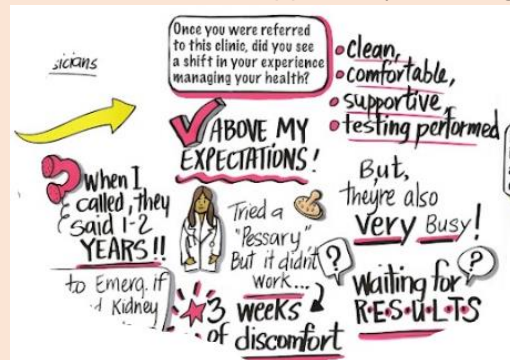 sicians
Once you were referred
to this clinic, did you see
a shift in your experience
managing your health?
• clean,
• comfortable,
• supportive,
• testing performed
ABOVE MY
EXPECTATIONS!
When I
called, they
said 1-2
YEARS!!
to Emerg. if
Kidney
Tried a
"Pessary"
But it didn't
work...
3 weeks
of discomfort
But,
they're also
very Busy!
?
?
Waiting for
R•E•S•U•L•T•S